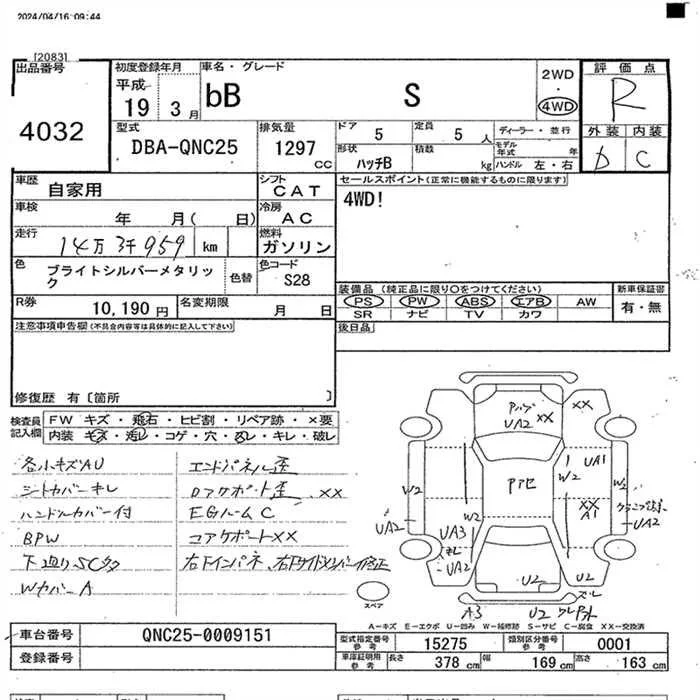 2024/04/16 09:44
[2083]
出品番号
4032
初度登録年月
平成
19 3月
車名・グレード
bB S
2WD
4WD
評価点
R
外装 内装
D C
型式
DBA-QNC25
排気量
1297 CC
ドア 5
定員 5 人
ディーラー・並行
形状 ハッチB
積数 kg
モデル年式 年
ハンドル 左・右
車歴 自家用
シフト CAT
セールスポイント(正常に機能するものに限ります)
4WD!
車検 年 月( 日)
冷房 AC
走行 14万3千959 km
燃料 ガソリン
色 ブライトシルバーメタリック
色替
色コード S28
装備品 (純正品に限り○をつけてください)
新車保証書
PS PW ABS エアB AW
有・無
SR ナビ TV カワ
R券 10,190 円
名変期限 月 日
後日品
注意事項申告欄(不具合内容等は具体的に記入して下さい)
修復歴 有〔箇所 〕
検査員記入欄
FW キズ・飛石・ヒビ割・リペア跡・×要
内装 キズ・汚レ・コゲ・穴・ネレ・キレ・破レ
各小キズAU
シートカバーキレ
ハンドルカバー付
BPW
下廻りSCタ
Wカバー A
エンドパネル歪
ロアサポート歪 XX
EGルームC
コアサポートXX
右下インパネ、右下サイドメンバー修正
XX
UA2
XX
UA1
W2
W2
W2
XX
A1
UA2
UA2
UA3
UA2
U2
U2
A3
U2
スペア
A-キズ E-エクボ U-凹み W-補修跡 S-サビ C-腐食 XX-交換済
車台番号 QNC25-0009151
登録番号
型式指定番号 参考 15275
類別区分番号 参考 0001
車庫証明用 参考 長さ 378 cm 幅 169 cm 高さ 163 cm